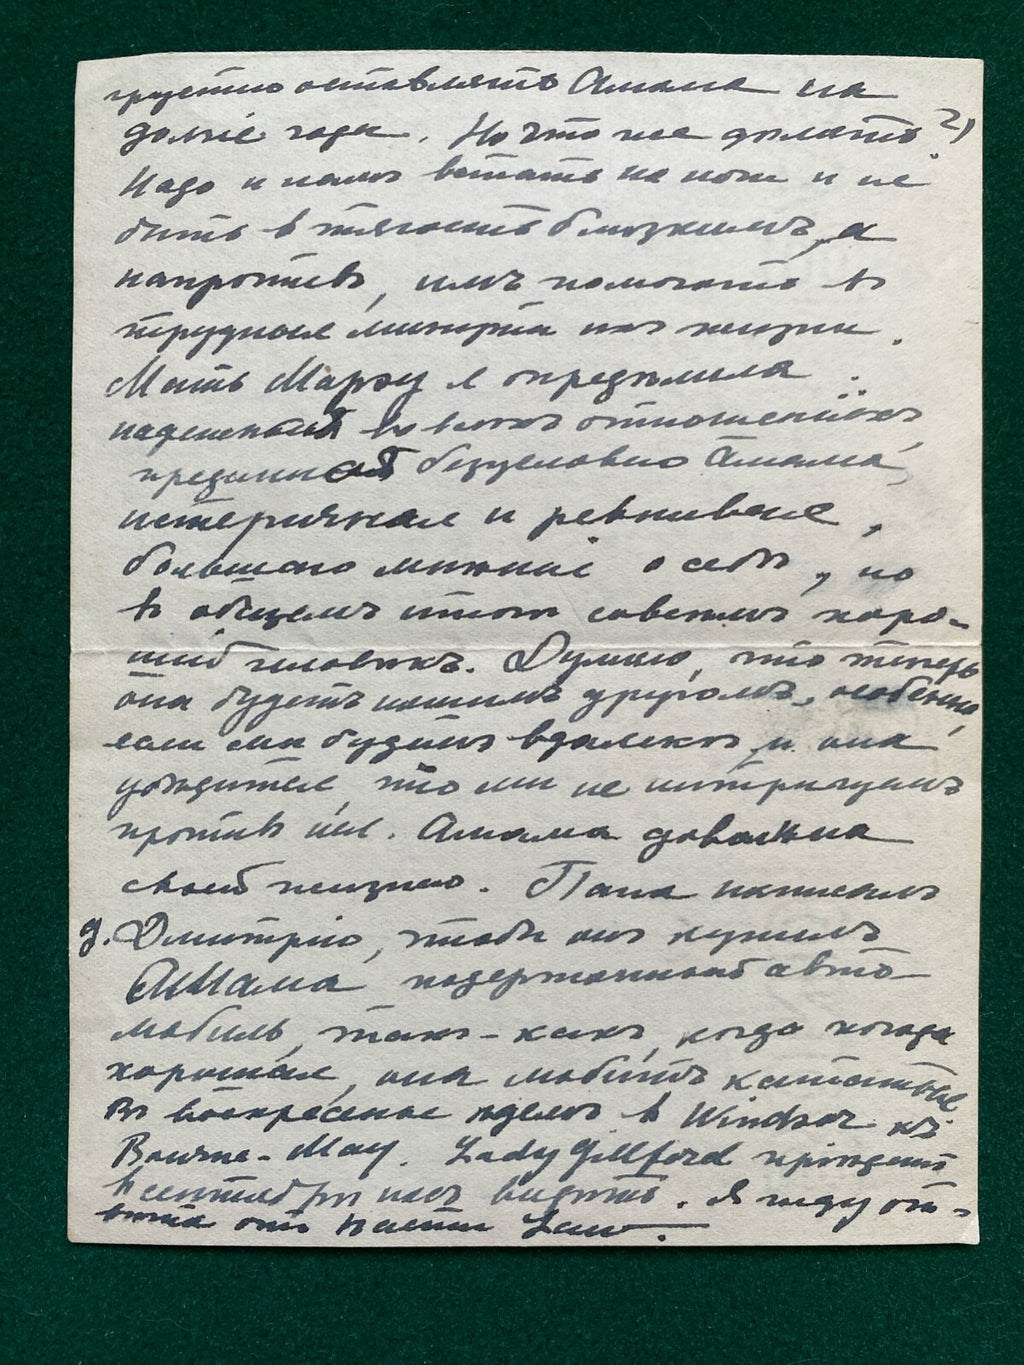 грустно оставлять Амама на
долгіе годы. Но что же дѣлать 2)
Надо и намъ встать на ноги и не
быть в тягость близкимъ, а
напротивъ, имъ помогать въ
трудныя минуты ихъ жизни.
Мать Марѳу я опредѣлила:
надежной во всѣхъ отношеніяхъ,
преданной безусловно Амама,
истеричная и ревнивая,
большаго мнѣнія о себѣ, но
в общемъ итогѣ совсѣмъ хоро-
шій человѣкъ. Думаю, что теперь
она будетъ нашимъ другомъ, особенно,
если мы будемъ вдалекѣ и она
убѣдится, что мы не интригуемъ
противъ нея. Амама довольна
своей жизнью. Папа написалъ
д. Дмитрію, чтобы онъ купилъ
АМама подержанный авто-
мобиль, такъ-какъ, когда погода
хорошая, она любитъ кататься
Въ воскресенье ѣдемъ в Windsor къ
-May. Lady Gillford пріѣдетъ
в сентябрѣ насъ видѣть. Я жду от-
вѣта отъ